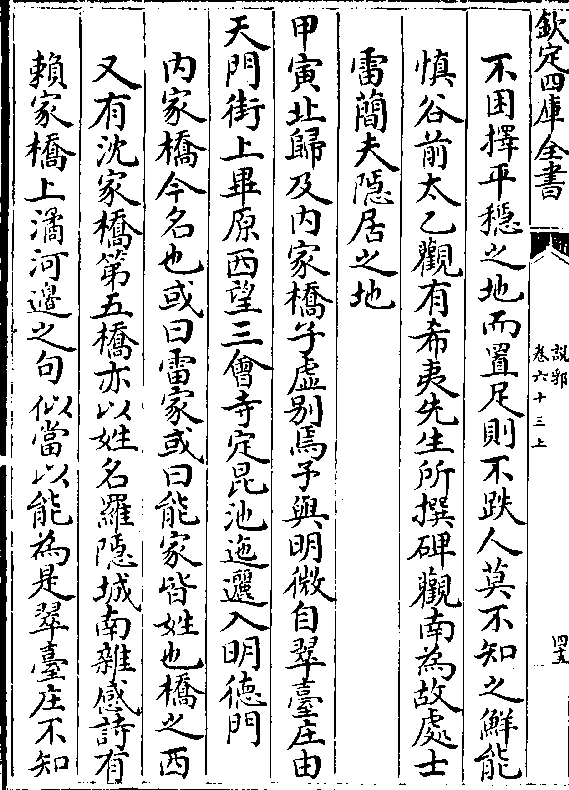 欽定四庫全書
說郛
卷六十三上
四五
不困擇平穩之地而置足則不跌人莫不知之鮮能
慎谷前太乙觀有希夷先生所撰碑觀南為故處士
雷簡夫隱居之地
甲寅北歸及内家橋子虚别焉予與明微自翠臺庄由
天門街上畢原西望三會寺定昆池迤邐入明德門
内家橋今名也或曰雷家或曰能家皆姓也橋之西
又有沈家橋第五橋亦以姓名羅隱城南雜感詩有
賴家橋上潏河邉之句似當以能為是翠臺庄不知